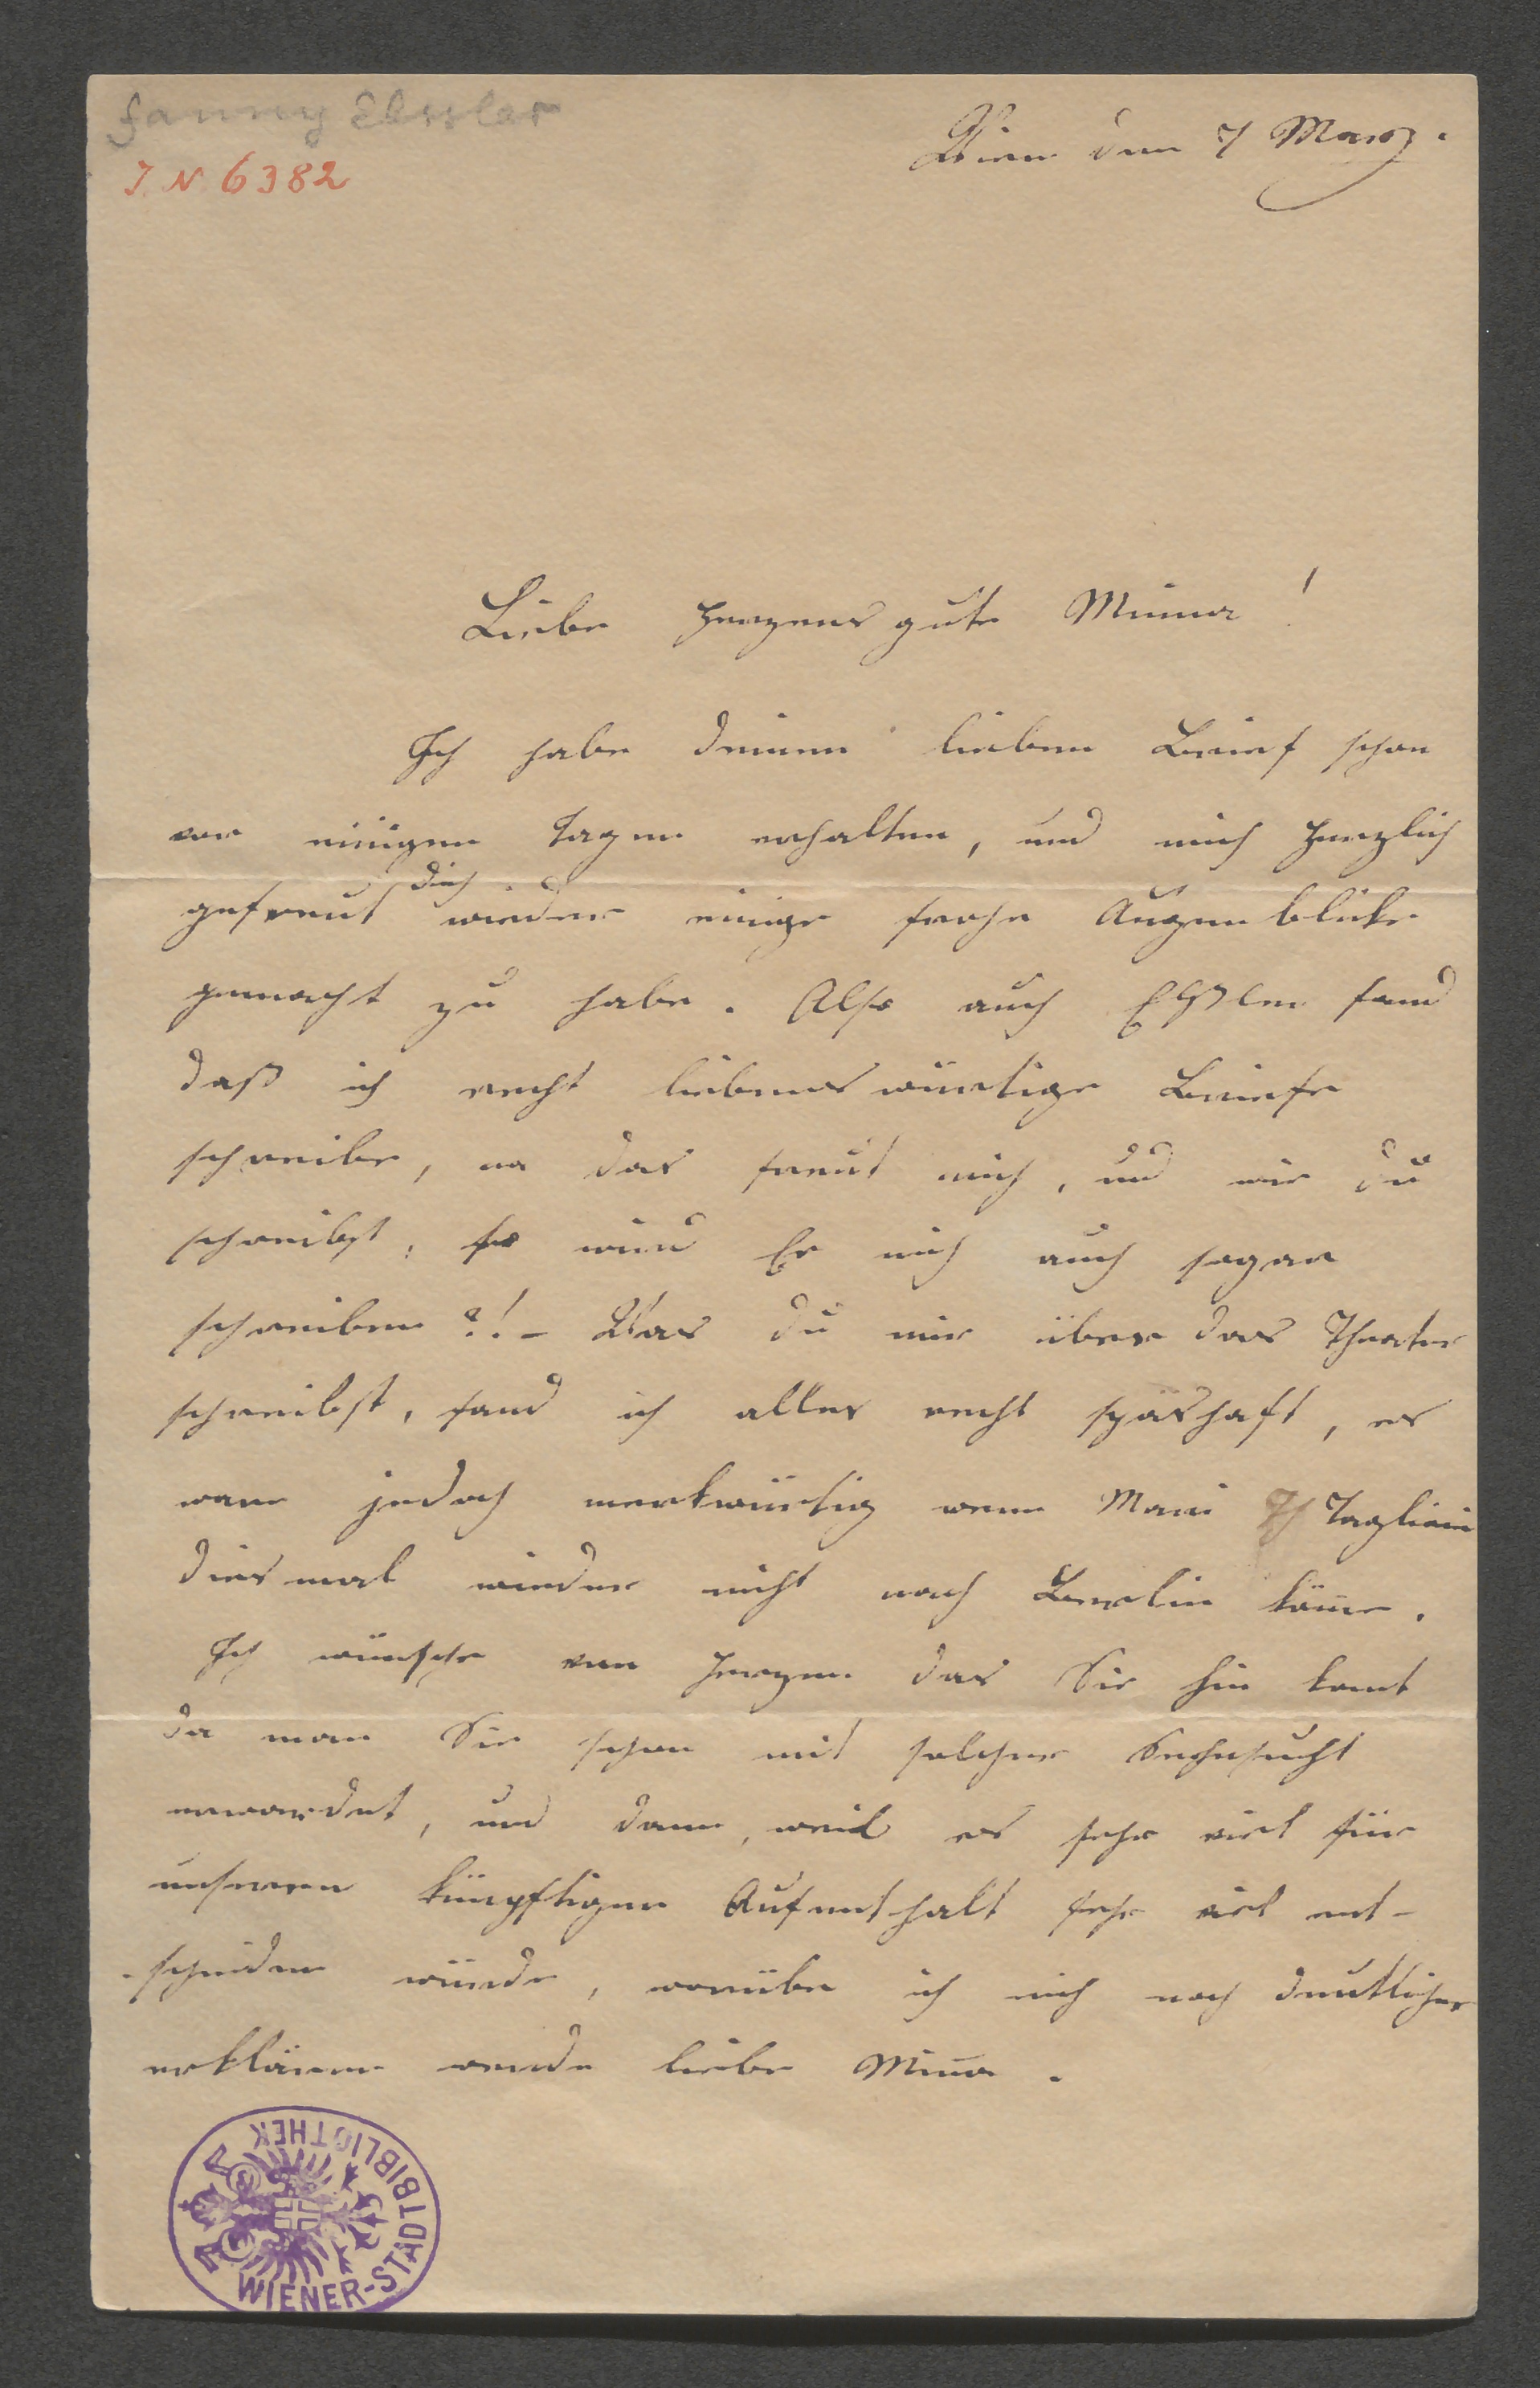 Fanny Elssler
J. N. 6382
Wien den 7 Marz.
Liebe Herzens gute Minna!
Ich habe deinen lieben Brief schon
vor einigen Tagen erhalten, und mich herzlich
gefreut dich wieder einige frohe Augenblicke
gemacht zu habe. Also auch fand
daß ich recht liebenswürtige Briefe
schreibe, na das freut mich, und wie du
schreibst, so wird Er mich auch sogar
schreiben ?! – Was du mir über das Theater
schreibst, fand ich alles recht späshaft, es
ware jedoch merkwürtig wenn Marie Taglioni
diesmal wieder nicht nach Berlin käme.
Ich wünsche von Herzen das Sie hin komt
da man Sie schon mit solcher Sehnsucht
erwardet, und dann, weil es sehr viel für
unseren künpftigen Aufenthalt sehr viel ent-
-scheiden würde, worübe ich mich noch deutlicher
erklären werde liebe Minna.
WIENER-STADTBIBLIOTHEK